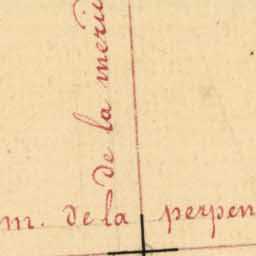 de la meri
m. de la perpen